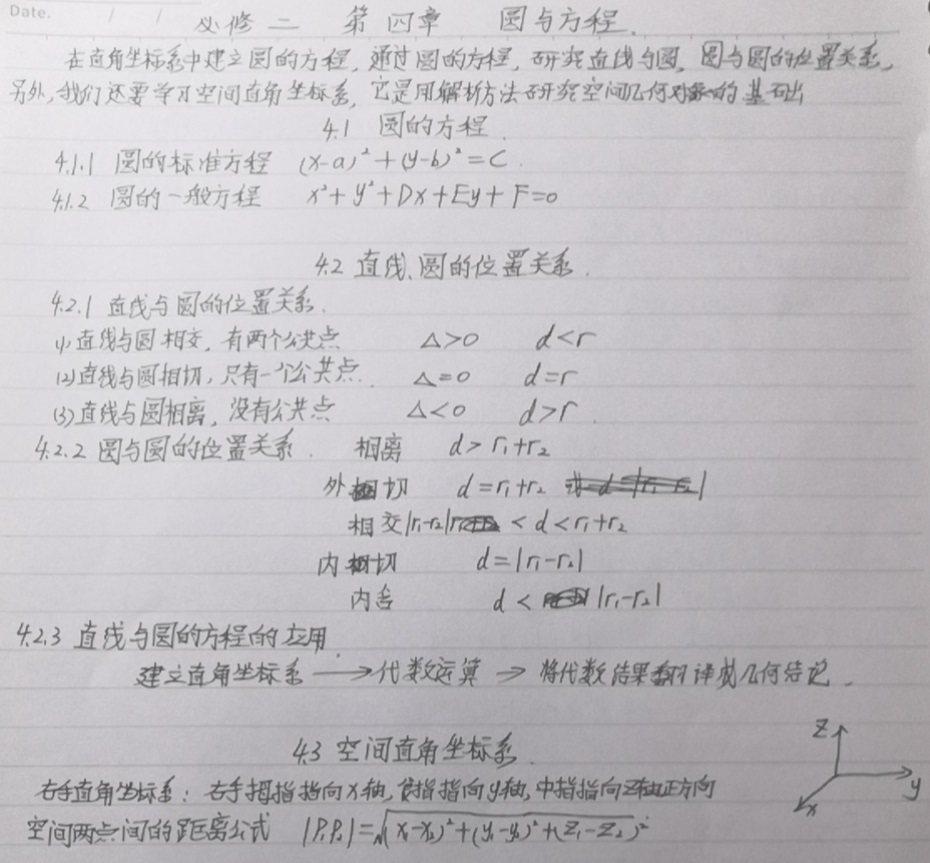 Date. / /
必修二 第四章 圆与方程.
在直角坐标系中建立圆的方程,通过圆的方程,研究直线与圆,圆与圆的位置关系。
另外,我们还要学习空间直角坐标系,它是用解析方法研究空间几何对象的基础
4.1 圆的方程.
4.1.1 圆的标准方程 (x-a)²+(y-b)²=C.
4.1.2 圆的一般方程 x²+y²+Dx+Ey+F=0
4.2 直线、圆的位置关系.
4.2.1 直线与圆的位置关系.
(1)直线与圆相交,有两个公共点 △>0 d<r
(2)直线与圆相切,只有一个公共点. △=0 d=r
(3)直线与圆相离,没有公共点 △<0 d>r.
4.2.2 圆与圆的位置关系. 相离 d>r₁+r₂
外切 d=r₁+r₂
相交 |r₁-r₂| <d<r₁+r₂
内切 d=|r₁-r₂|
内含 d< |r₁-r₂|
4.2.3 直线与圆的方程的应用.
建立直角坐标系 → 代数运算 → 将代数结果翻译成几何结论.
4.3 空间直角坐标系.
右手直角坐标系:右手拇指指向x轴,食指指向y轴,中指指向z轴正方向
空间两点间的距离公式 |P₁P₂|=√(x₁-x₂)²+(y₁-y₂)²+(z₁-z₂)²
z
y
x